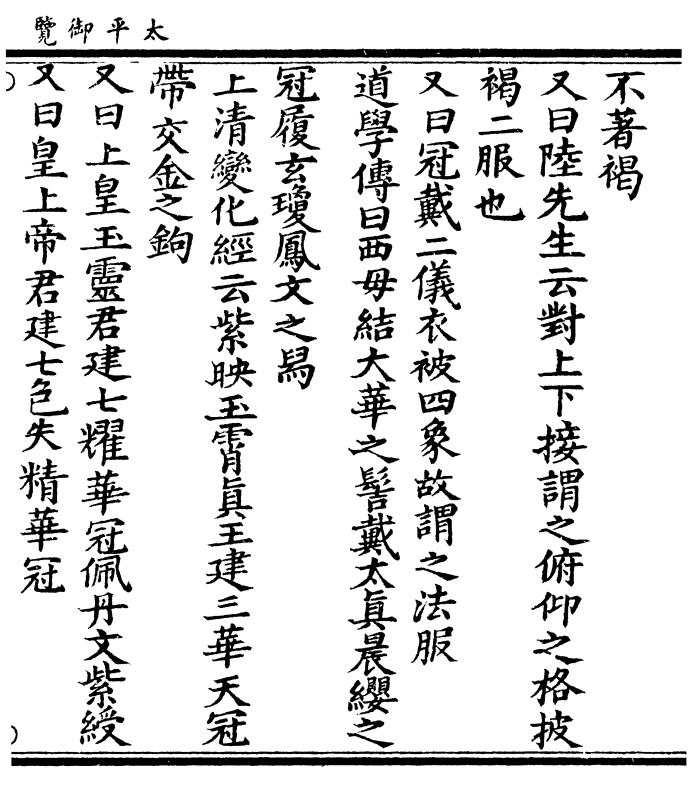 太平御覽
不著褐
又曰陸先生云對上下接謂之俯仰之格披
褐二服也
又曰冠戴二儀衣被四象故謂之法服
道學傳曰西母結大華之髻戴太真晨纓之
冠履玄瓊鳳文之舄
上清變化經云紫映玉霄真王建三華天冠
帶交金之鉤
又曰上皇玉靈君建七耀華冠佩丹文紫綬
又曰皇上帝君建七色失精華冠